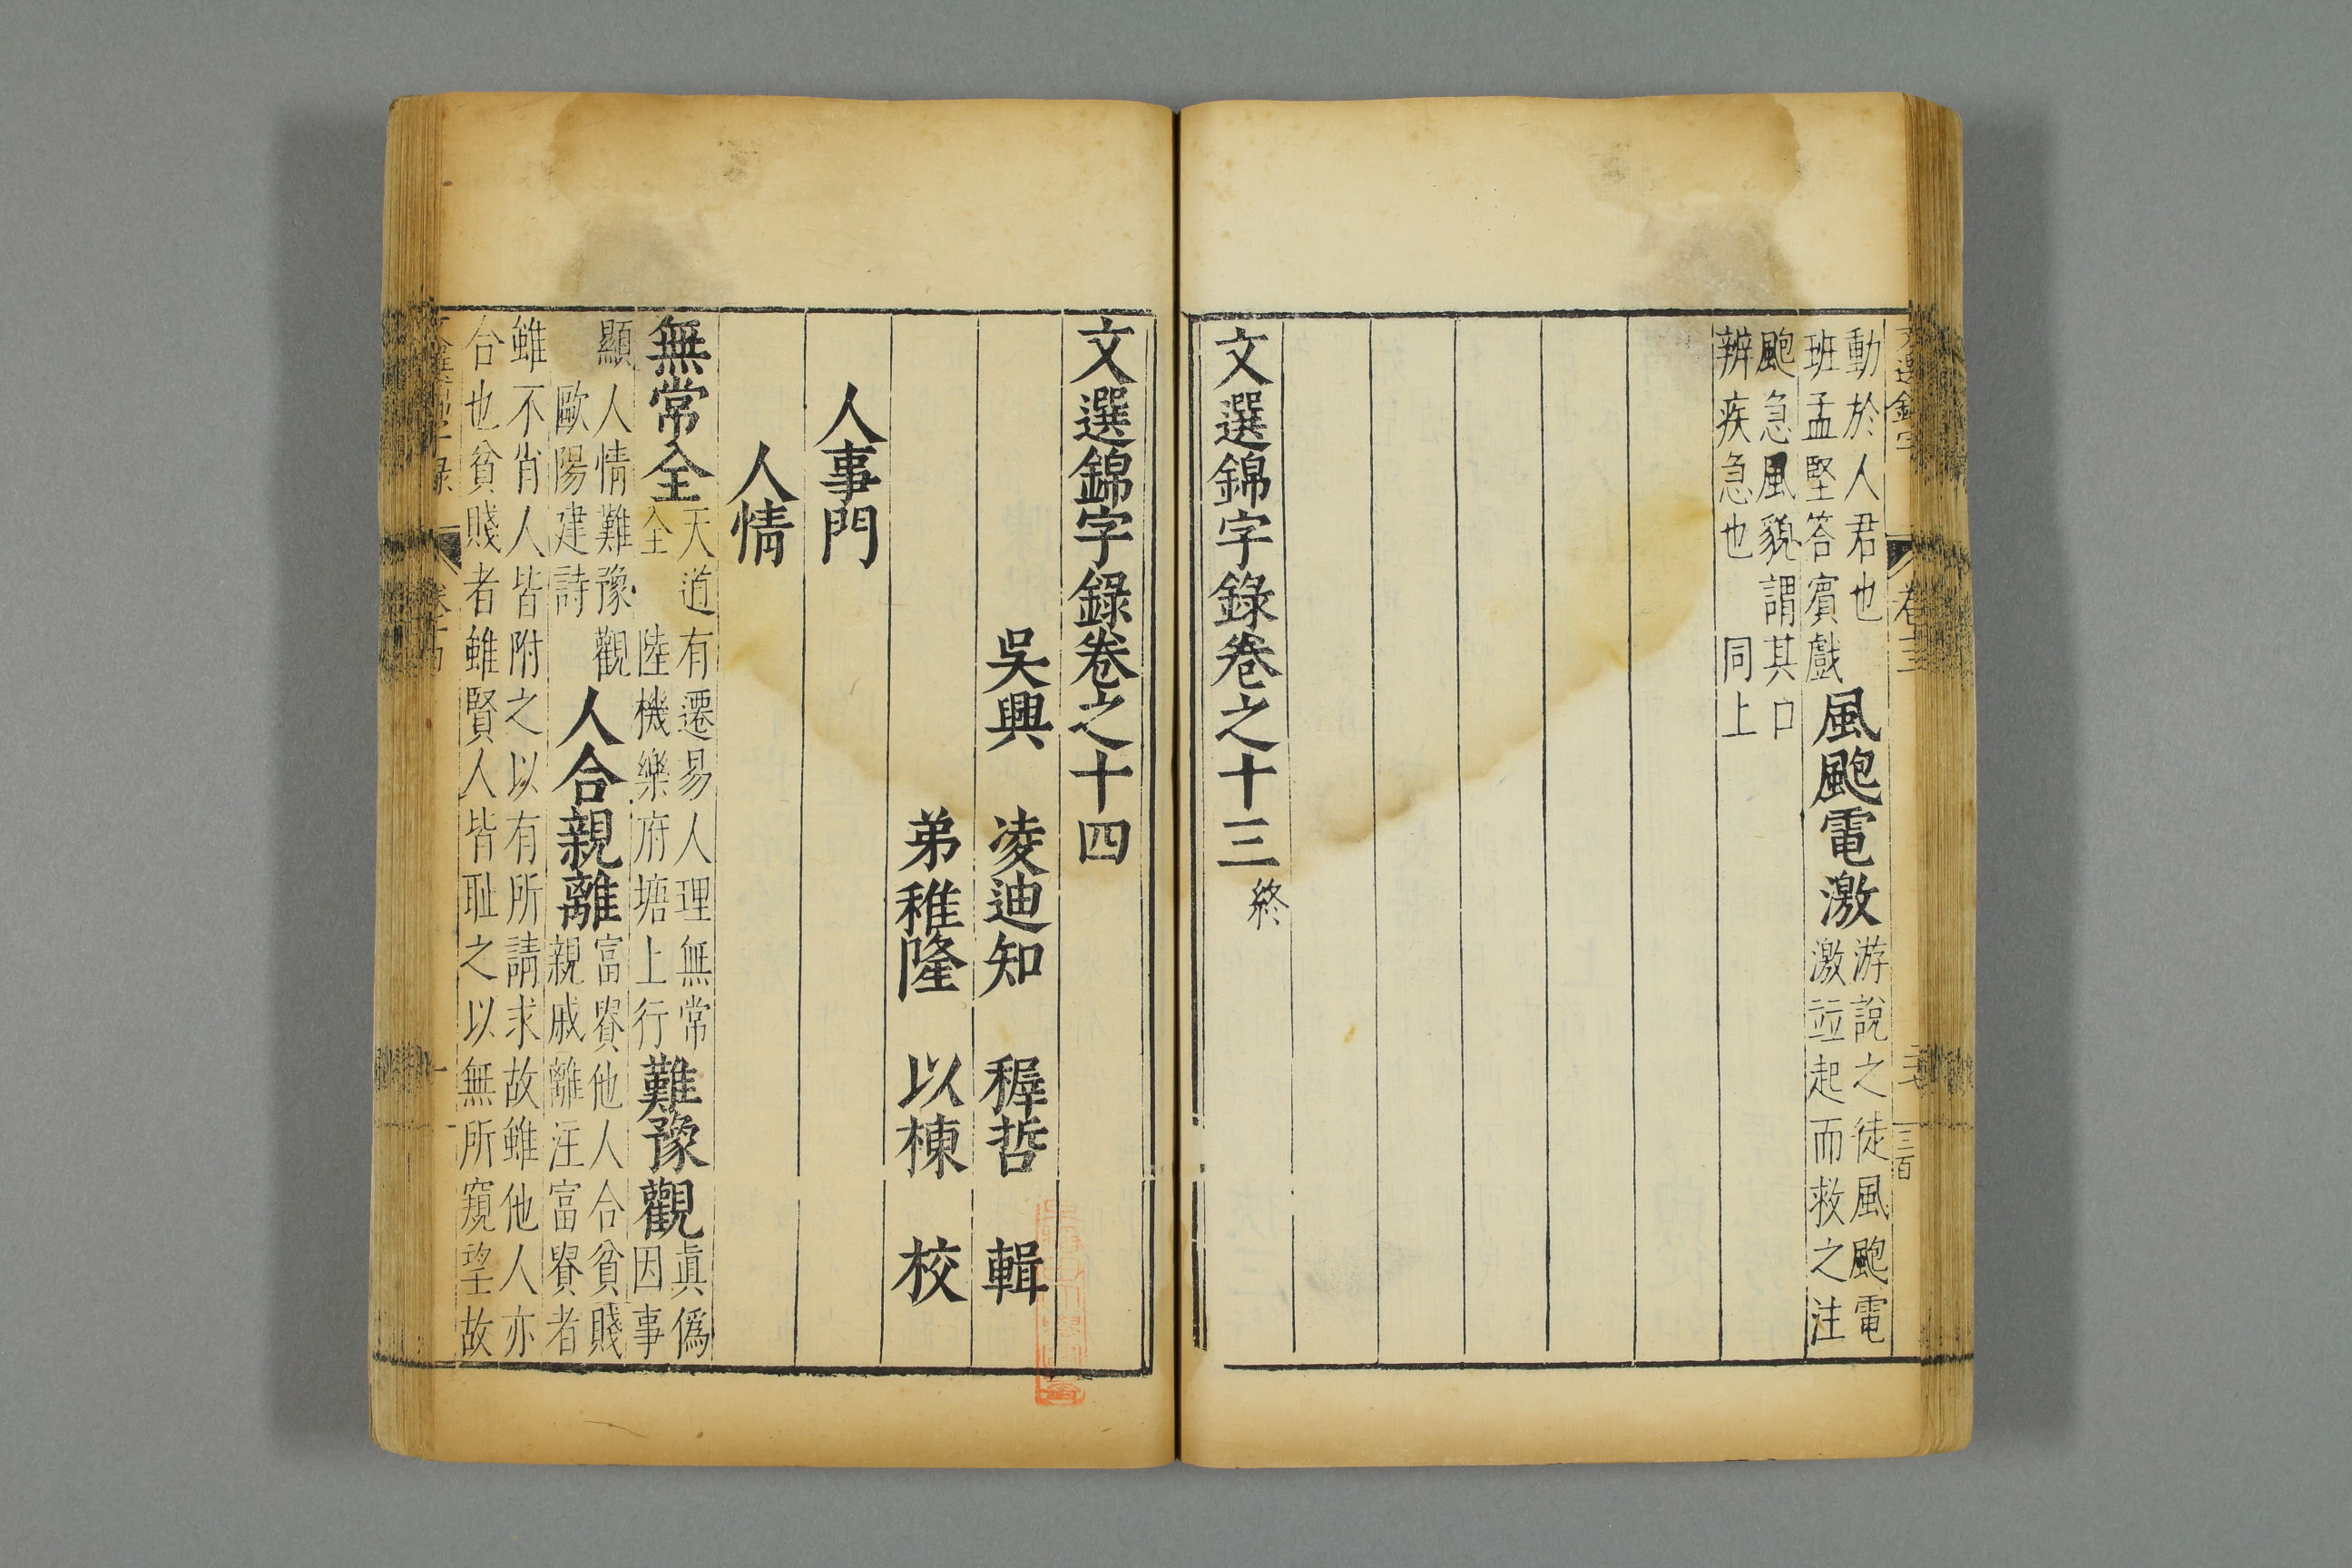 動於人君也
班孟堅答賓戲
風颮電激
游說之徒風颮電
激竝起而救之注
颮急風貌謂其口
辨疾急也 同上
文選錦字錄卷之十三終
三百
文選錦字錄卷之十四
吳興 凌迪知 穉哲 輯
弟稚隆 以棟 校
人事門
人情
無常全
天道有遷易人理無常
全 陸機樂府塘上行
難豫觀
眞僞
因事
顯 人情難豫觀
歐陽建詩
人合親離
富貴他人合貧賤
親戚離注富貴者
雖不肖人皆附之以有所請求故雖他人亦
合也貧賤者雖賢人皆耻之以無所窺望故